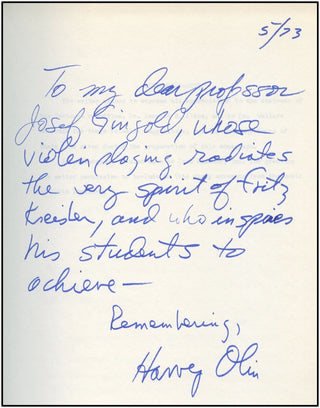 5/73
To my dear professor
Josef Gingold, whose
violin playing radiates
the very spirit of Fritz
Kreisler, and who inspires
his students to
achieve—
Remembering,
Harvey Olin